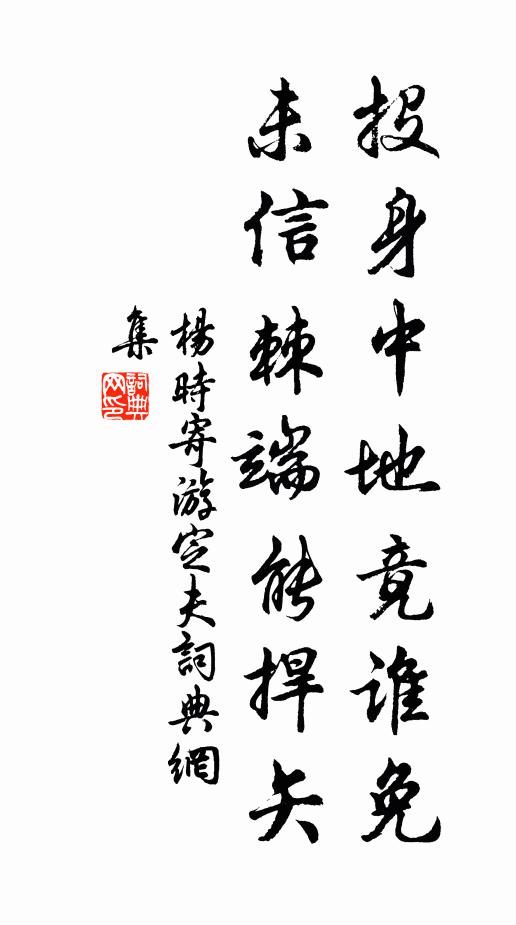 投身中地竟谁免
未信棘端能捍矢
楊時寄游定夫詞典網
集
詞典
网印